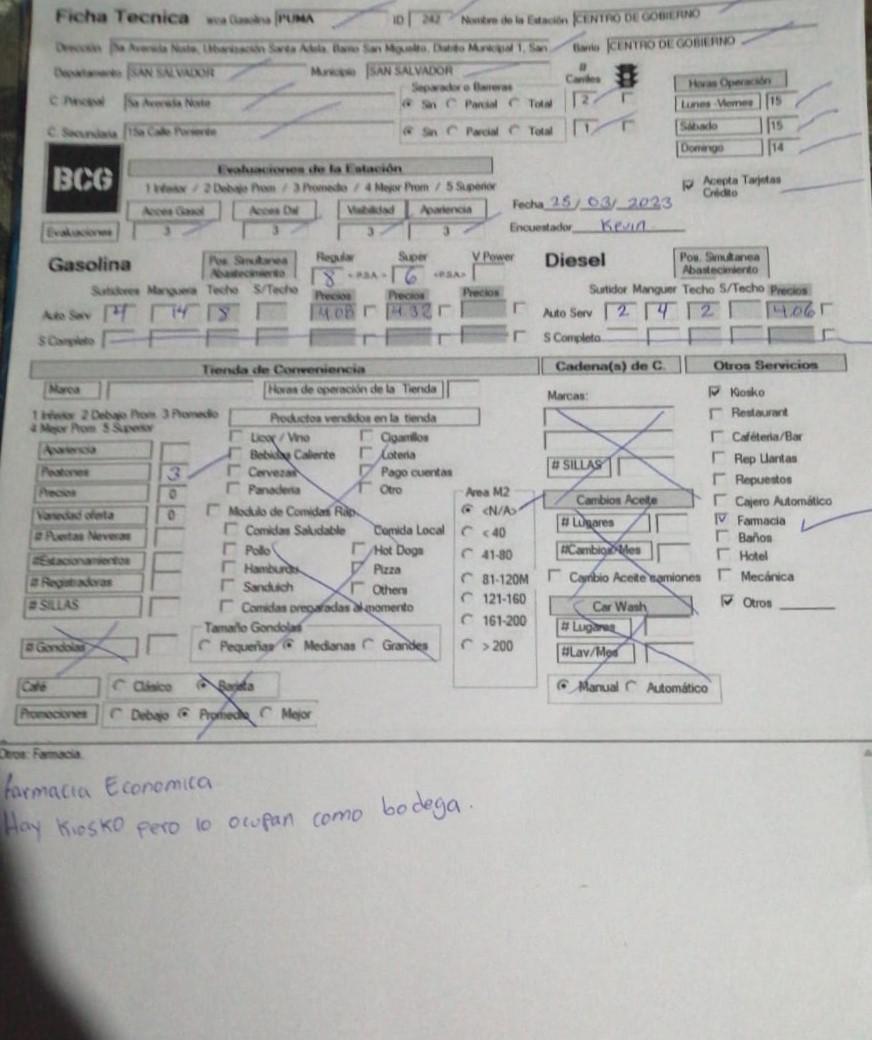 Ficha Tecnica arca Gasolina PUMA ID 242 Nombre de la Estación CENTRO DE GOBIERNO
Dirección 5a Avenida Norte, Urbanización Santa Adela, Barrio San Miguelito, Distrito Municipal 1, San Barrio CENTRO DE GOBIERNO
Departamento SAN SALVADOR Municipio SAN SALVADOR # Carriles
Separador o Barreras Horas Operación
C. Principal 5a Avenida Norte Sin Parcial Total 2 Lunes -Viernes 15
C. Secundaria 15a Calle Poniente Sin Parcial Total 1 Sábado 15
Domingo 14
BCG Evaluaciones de la Estación
1 Inferior / 2 Debajo Prom / 3 Promedio / 4 Mejor Prom / 5 Superior Acepta Tarjetas Crédito
Acces Gasol Acces Dsl Visibilidad Apariencia Fecha 25/03/2023
Evaluaciones 3 3 3 3 Encuestador Kevin
Gasolina Pos. Simultanea Abastecimiento Regular 8 <-P.S.A.-> Super 6 <-P.S.A> V Power Diesel Pos. Simultanea Abastecimiento
Surtidores Manguera Techo S/Techo Precios Precios Precios Surtidor Manguer Techo S/Techo Precios
Auto Serv 4 14 8 4.08 4.32 Auto Serv 2 4 2 4.06
S Completo S Completo
Tienda de Conveniencia Cadena(s) de C. Otros Servicios
Marca Horas de operación de la Tienda Marcas: Kiosko
1 Inferior 2 Debajo Prom 3 Promedio Productos vendidos en la tienda Restaurant
4 Mejor Prom 5 Superior Licor / Vino Cigarrillos Caféteria/Bar
Apariencia Bebidas Caliente Loteria Rep Llantas
Peatones 3 Cervezas Pago cuentas # SILLAS Repuestos
Precios 0 Panaderia Otro Area M2 Cambios Aceite Cajero Automático
Variedad oferta 0 Modulo de Comidas Rap <N/A> # Lugares Farmacia
# Puertas Neveras Comidas Saludable Comida Local < 40 Baños
#Estacionamientos Pollo Hot Dogs 41-80 #Cambios/Mes Hotel
# Registradoras Hamburdu Pizza 81-120M Cambio Aceite camiones Mecánica
# SILLAS Sanduich Others 121-160 Car Wash Otros
Comidas preparadas al momento 161-200 # Lugares
# Gondolas Tamaño Gondolas
Pequeñas Medianas Grandes > 200 #Lav/Mes
Café Clásico Barista Manual Automático
Promociones Debajo Promedio Mejor
Otros: Farmacia.
Farmacia Economica
Hay Kiosko pero lo ocupan como bodega.